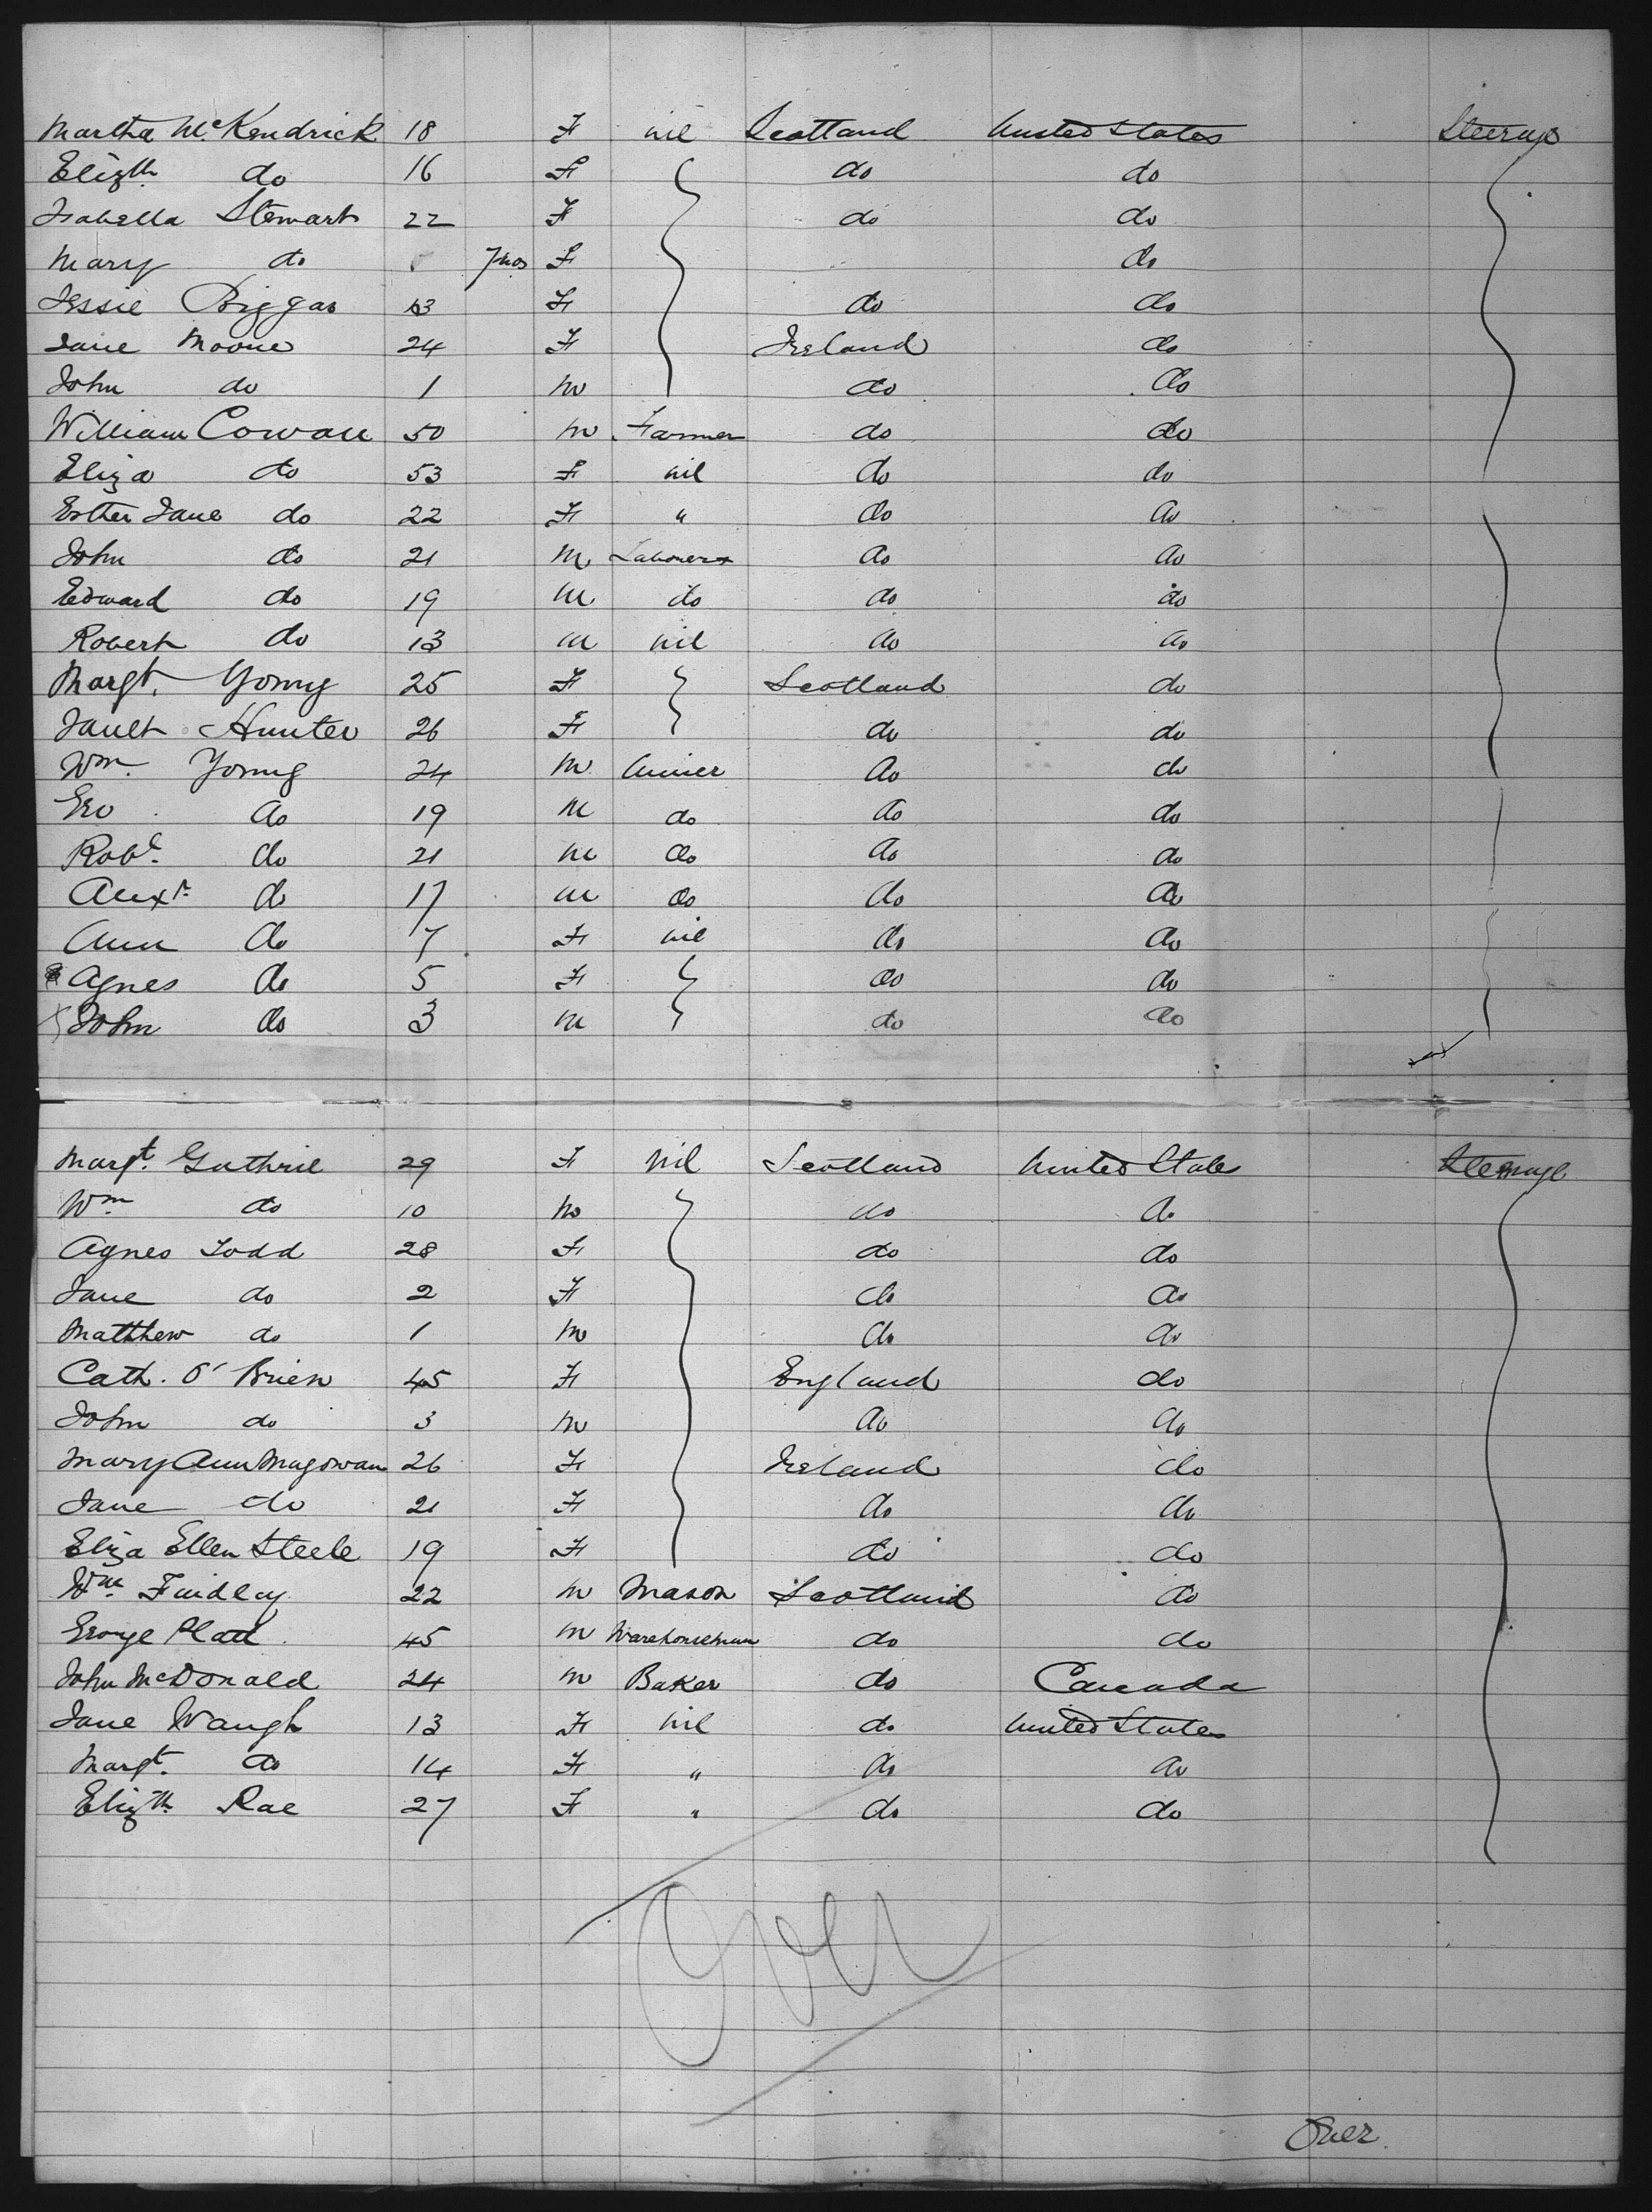 Martha McKendrick 18 F nil Scotland United States Steerage
Elizth do 16 F do do
Isabella Stewart 22 F do do
Mary do 7 mos F do
Jessie Biggar 13 F do do
Jane Moore 24 F Ireland do
John do 1 M do do
William Cowan 50 M Farmer do do
Eliza do 53 F nil do do
Esther Jane do 22 F " do do
John do 21 M Labourer do do
Edward do 19 M do do do
Robert do 13 M nil do do
Margt. Young 25 F Scotland do
Janet Hunter 26 F do do
Wm. Young 24 M do do
Geo do 19 M do do do
Robt. do 21 M do do do
Alexr. do 17 M do do do
Ann do 7 F nil do do
Agnes do 5 F do do
John do 3 M do do
Margt. Guthrie 29 F nil Scotland United States Steerage
Wm do 10 M do do
Agnes Todd 28 F do do
Jane do 2 F do do
Matthew do 1 M do do
Cath. O'Brien 45 F England do
John do 3 M do do
Mary Ann Magowan 26 F Ireland do
Jane do 21 F do do
Eliza Ellen Steele 19 F do do
Wm Findlay 22 M Mason Scotland do
George Platt 45 M Warehouseman do do
John McDonald 24 M Baker do Canada
Jane Waugh 13 F nil do United States
Margt. do 14 F " do do
Elizth Rae 27 F " do do
Over
Over